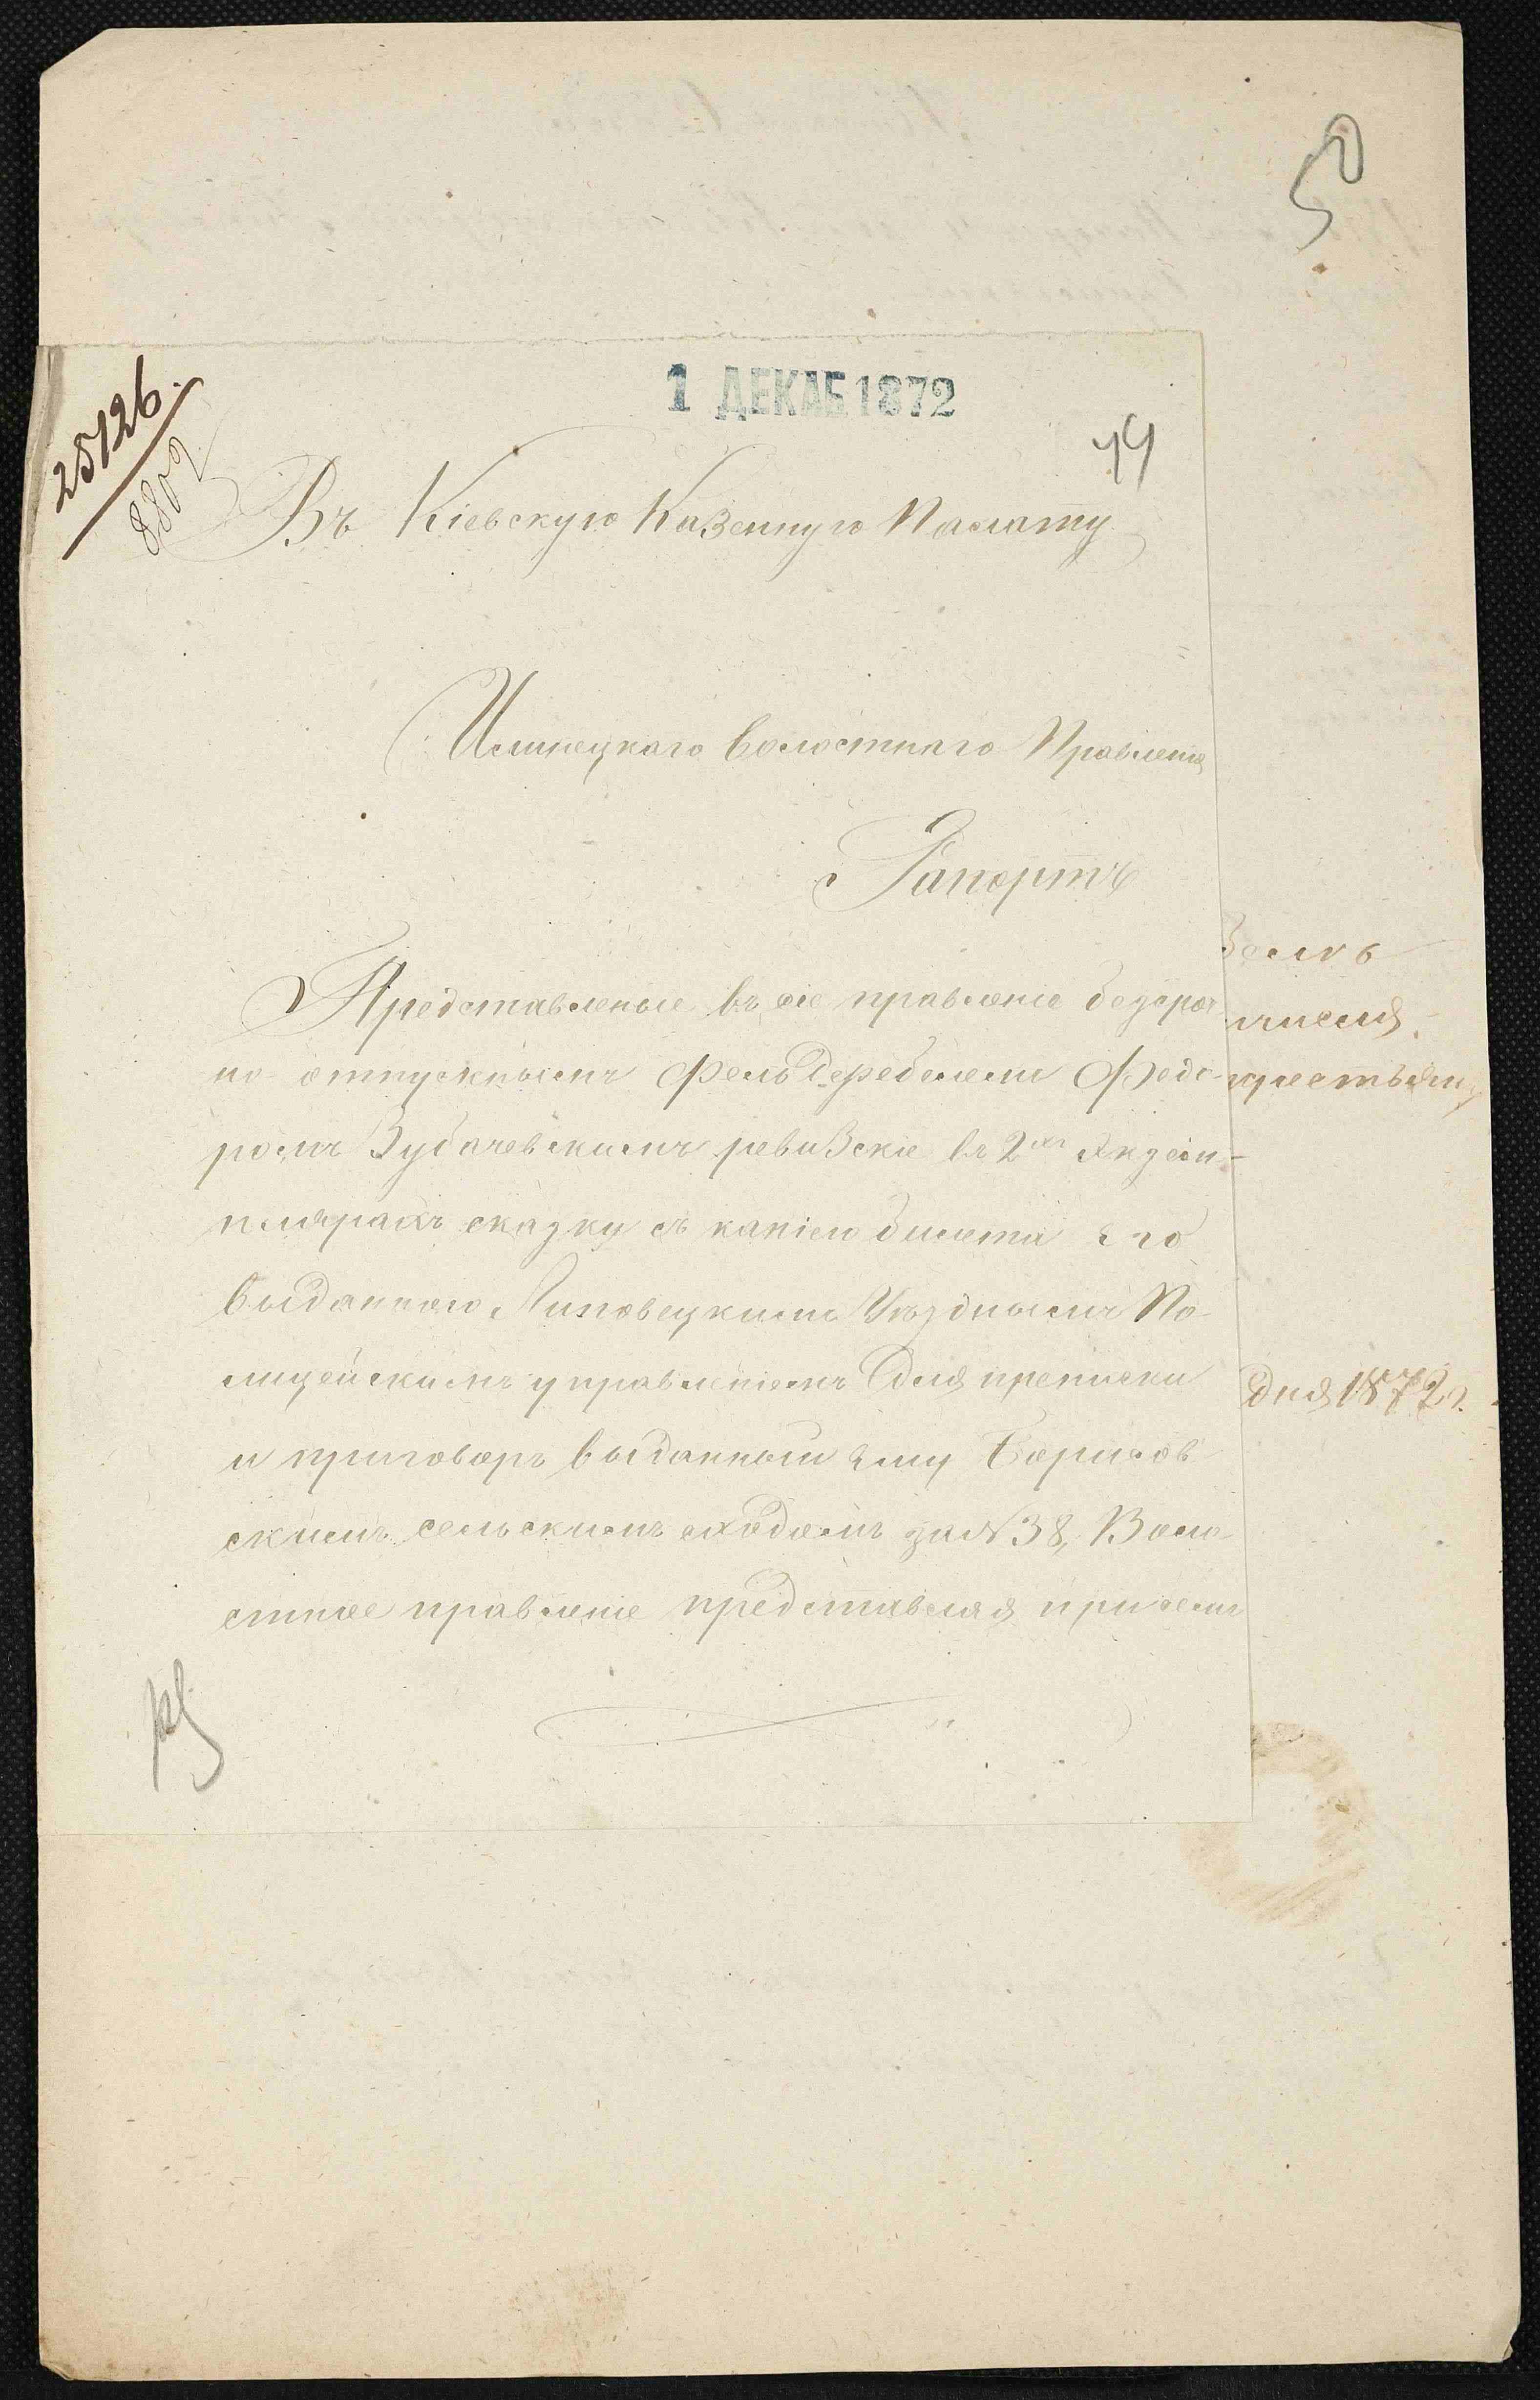 50
25126.
8809
1 ДЕКАБ 1872
Въ Кіевскую Казенную Палату
Илинецкаго Волостнаго Правленія
Рапортъ
Представленые въ сіе правленіе безсроч
но отпускнымъ Фельдфебелемъ Федо-
ромъ Зубачевскимъ ревизскіе въ 2хъ Экзем-
плярахъ сказку съ капіею билета Его
выданного Липовецкимъ Уѣзднымъ По-
лицейскимъ управленіемъ для преписки
и приговоръ выданный Ему Борисов
скимъ сельскимъ сходомъ за № 38, Воло
стное правленіе представляя при семъ
крестьяну
дня 1872 г.